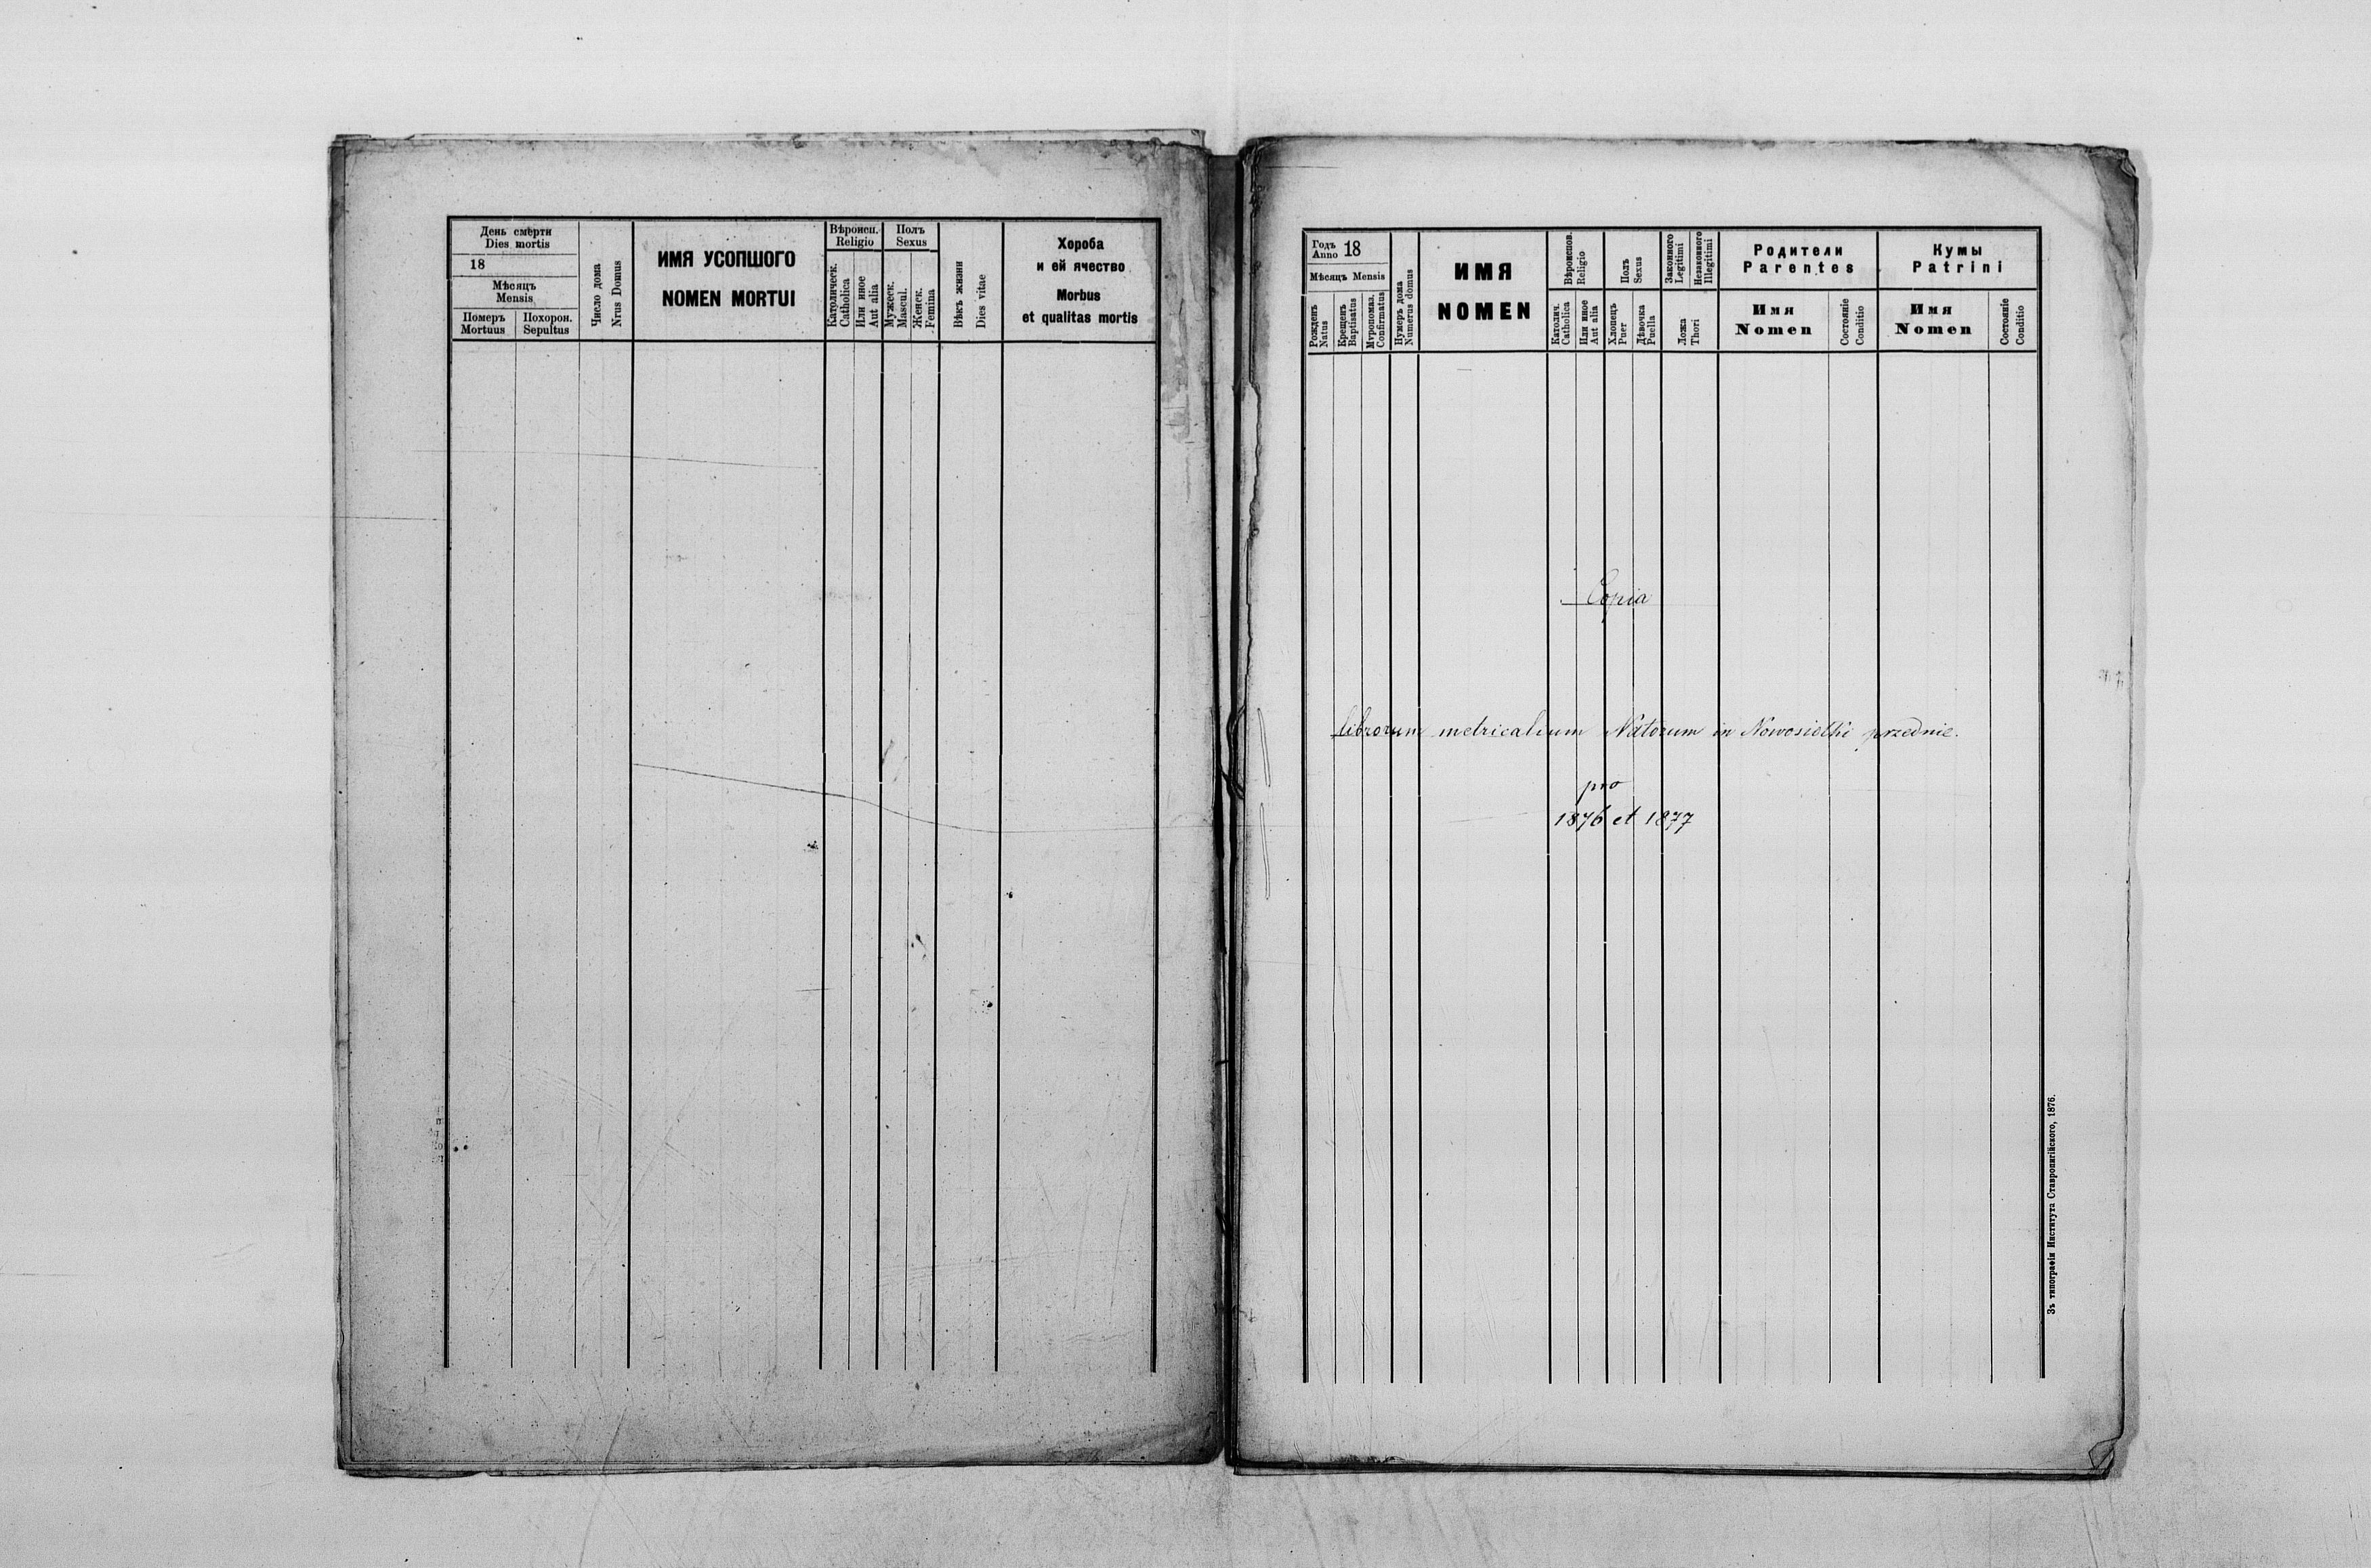 День смерти
Dies mortis
18
Мѣсяцъ
Mensis
Померъ
Mortuus
Похорон.
Sepultus
Число дома
Nrus Domus
ИМЯ УСОПШОГО
NOMEN MORTUI
Вѣроисп.
Religio
Католическ.
Catholica
Или иное
Aut alia
Полъ
Sexus
Мужеск.
Mascul.
Женск.
Femina
Вѣкъ жизни
Dies vitae
Хороба
и ей ячество
Morbus
et qualitas mortis
Годъ
Anno 18
Мѣсяцъ Mensis
Рожденъ
Natus
Крещенъ
Baptisatus
Муропомаз.
Confirmatus
Нумеръ дома
Numerus domus
ИМЯ
NOMEN
Вѣроиспов.
Religio
Католич.
Catholica
Или иное
Aut alia
Полъ
Sexus
Хлопецъ
Puer
Дѣвочка
Puella
Законного
Legitimi
Незаконного
Illegitimi
Ложа
Thori
Родители
Parentes
Имя
Nomen
Состоянїе
Conditio
Кумы
Patrini
Имя
Nomen
Состоянїе
Conditio
Copia
librorum metricalium Natorum in Nowosiolki przednie.
pro
1876 et 1877
Зъ типографіи Института Ставропигійского, 1876.